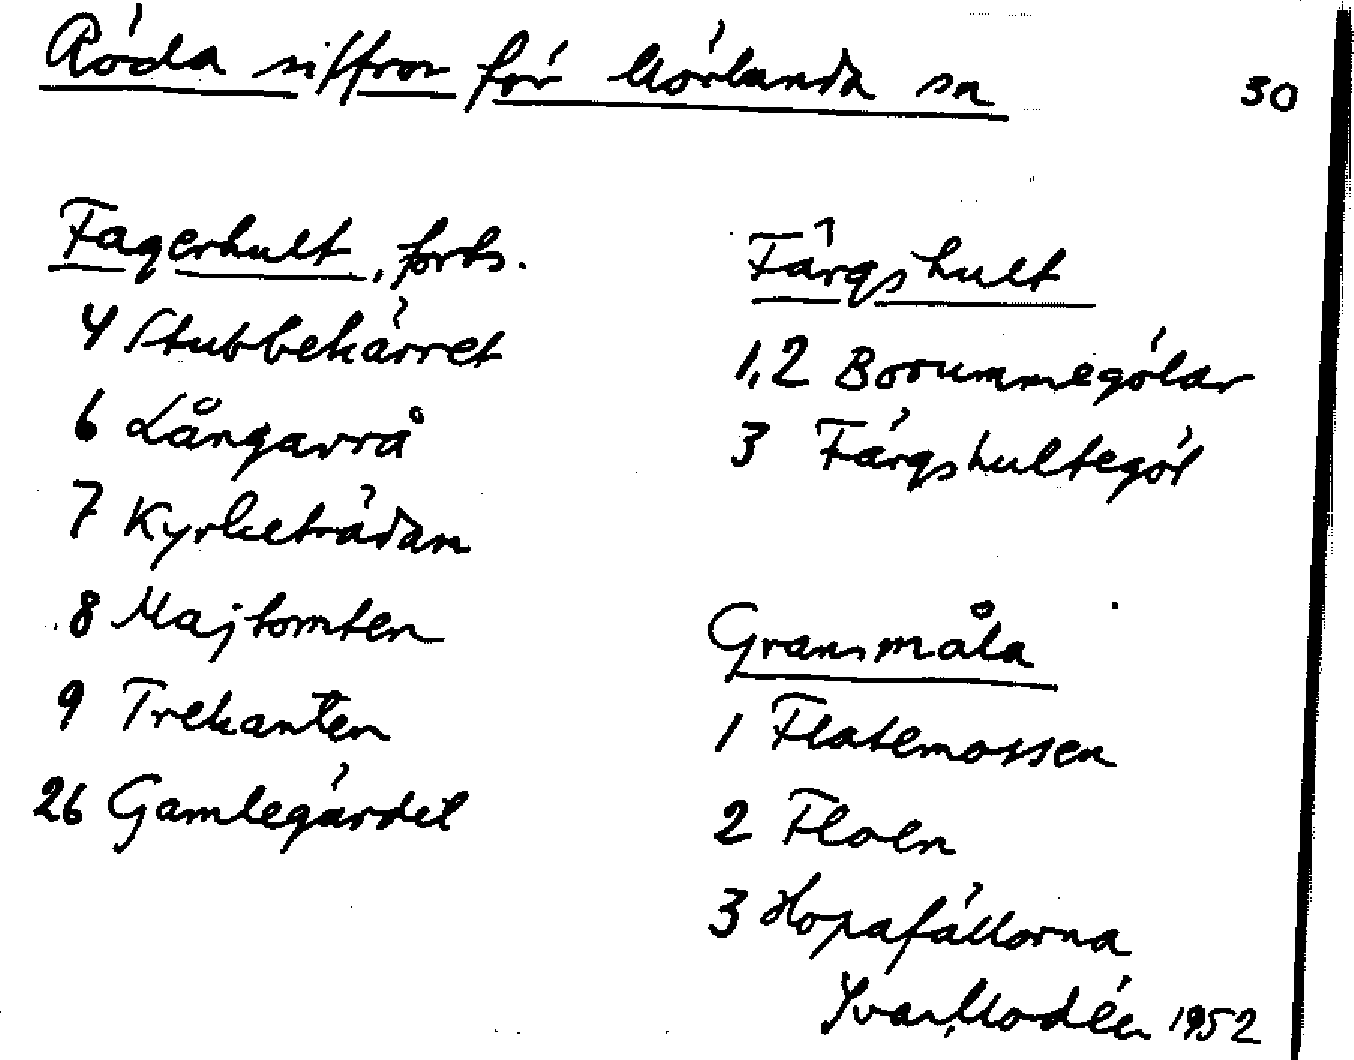 Röda siffror för Mörlunda sn
30
Fagerhult, forts.
4 Stubbekärret
6 Långarrå
7 Kyrketrädan
8 Majtomten
9 Trekanten
26 Gamlegärdet
Färgshult
1,2 Borummegölar
3 Färgshultegöl
Gransmåla
1 Flatemossen
2 Floen
3 Hopafällorna
Yvar Modéer 1952